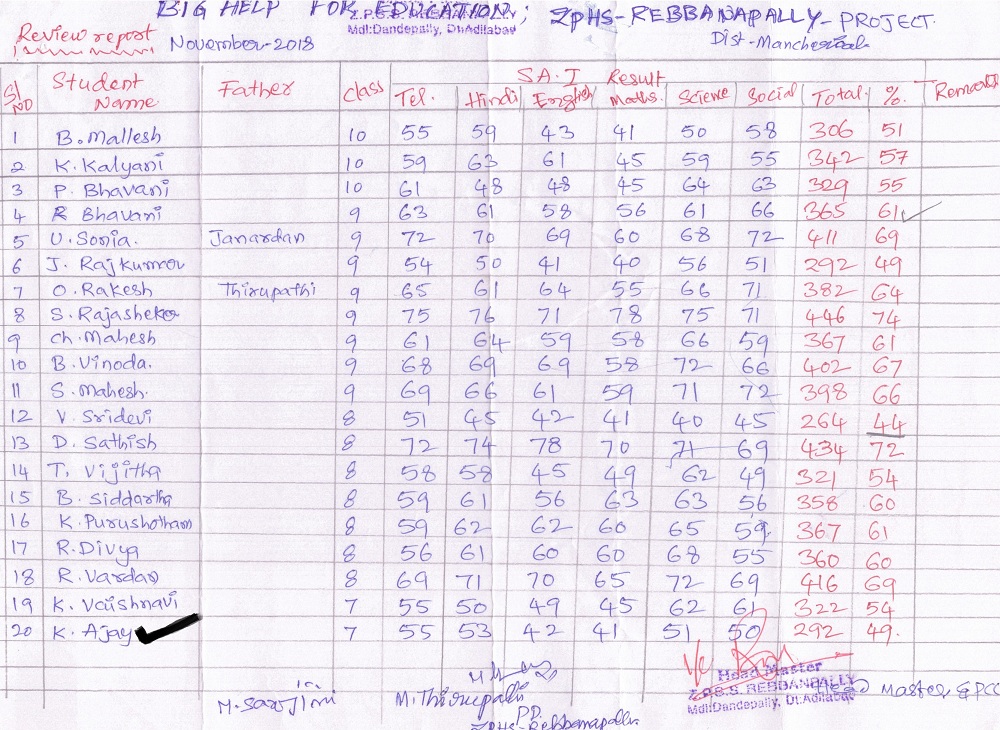 BIG HELP FOR EDUCATION; ZPHS-REBBANAPALLY-PROJECT.
Z.P.S.S. REBBANAPALLY
Mdl:Dandepally, Dt:Adilabad
Review report November-2018 Dist-Mancherial
SA.I Result
Sl No Student Name Father class Tel. Hindi English Maths. Science Social Total. %. Remarks
1 B. Mallesh 10 55 59 43 41 50 58 306 51
2 K. Kalyani 10 59 63 61 45 59 55 342 57
3 P. Bhavani 10 61 48 48 45 64 63 329 55
4 R Bhavani 9 63 61 58 56 61 66 365 61
5 U. Sonia. Janardan 9 72 70 69 60 68 72 411 69
6 J. Rajkumar 9 54 50 41 40 56 51 292 49
7 O. Rakesh Thirupathi 9 65 61 64 55 66 71 382 64
8 S. Rajasheker 9 75 76 71 78 75 71 446 74
9 Ch. Mahesh 9 61 64 59 58 66 59 367 61
10 B. Vinoda. 9 68 69 69 58 72 66 402 67
11 S. Mahesh. 9 69 66 61 59 71 72 398 66
12 V. Sridevi 8 51 45 42 41 40 45 264 44
13 D. Sathish 8 72 74 78 70 71 69 434 72
14 T. Vijitha 8 58 58 45 49 62 49 321 54
15 B. Siddartha 8 59 61 56 63 63 56 358 60
16 K. Purushotham 8 59 62 62 60 65 59 367 61
17 R. Divya 8 56 61 60 60 68 55 360 60
18 R. Vardan 8 69 71 70 65 72 69 416 69
19 K. Vaishnavi 7 55 50 49 45 62 61 322 54
20 K. Ajay 7 55 53 42 41 51 50 292 49.
M. Sarojini
M. Thirupathi
P.D.
ZPHS-Rebbanapally
Head Master
Z.P.S.S. REBBANPALLY
Mdl:Dandepally, Dt.Adilabad
Head Master